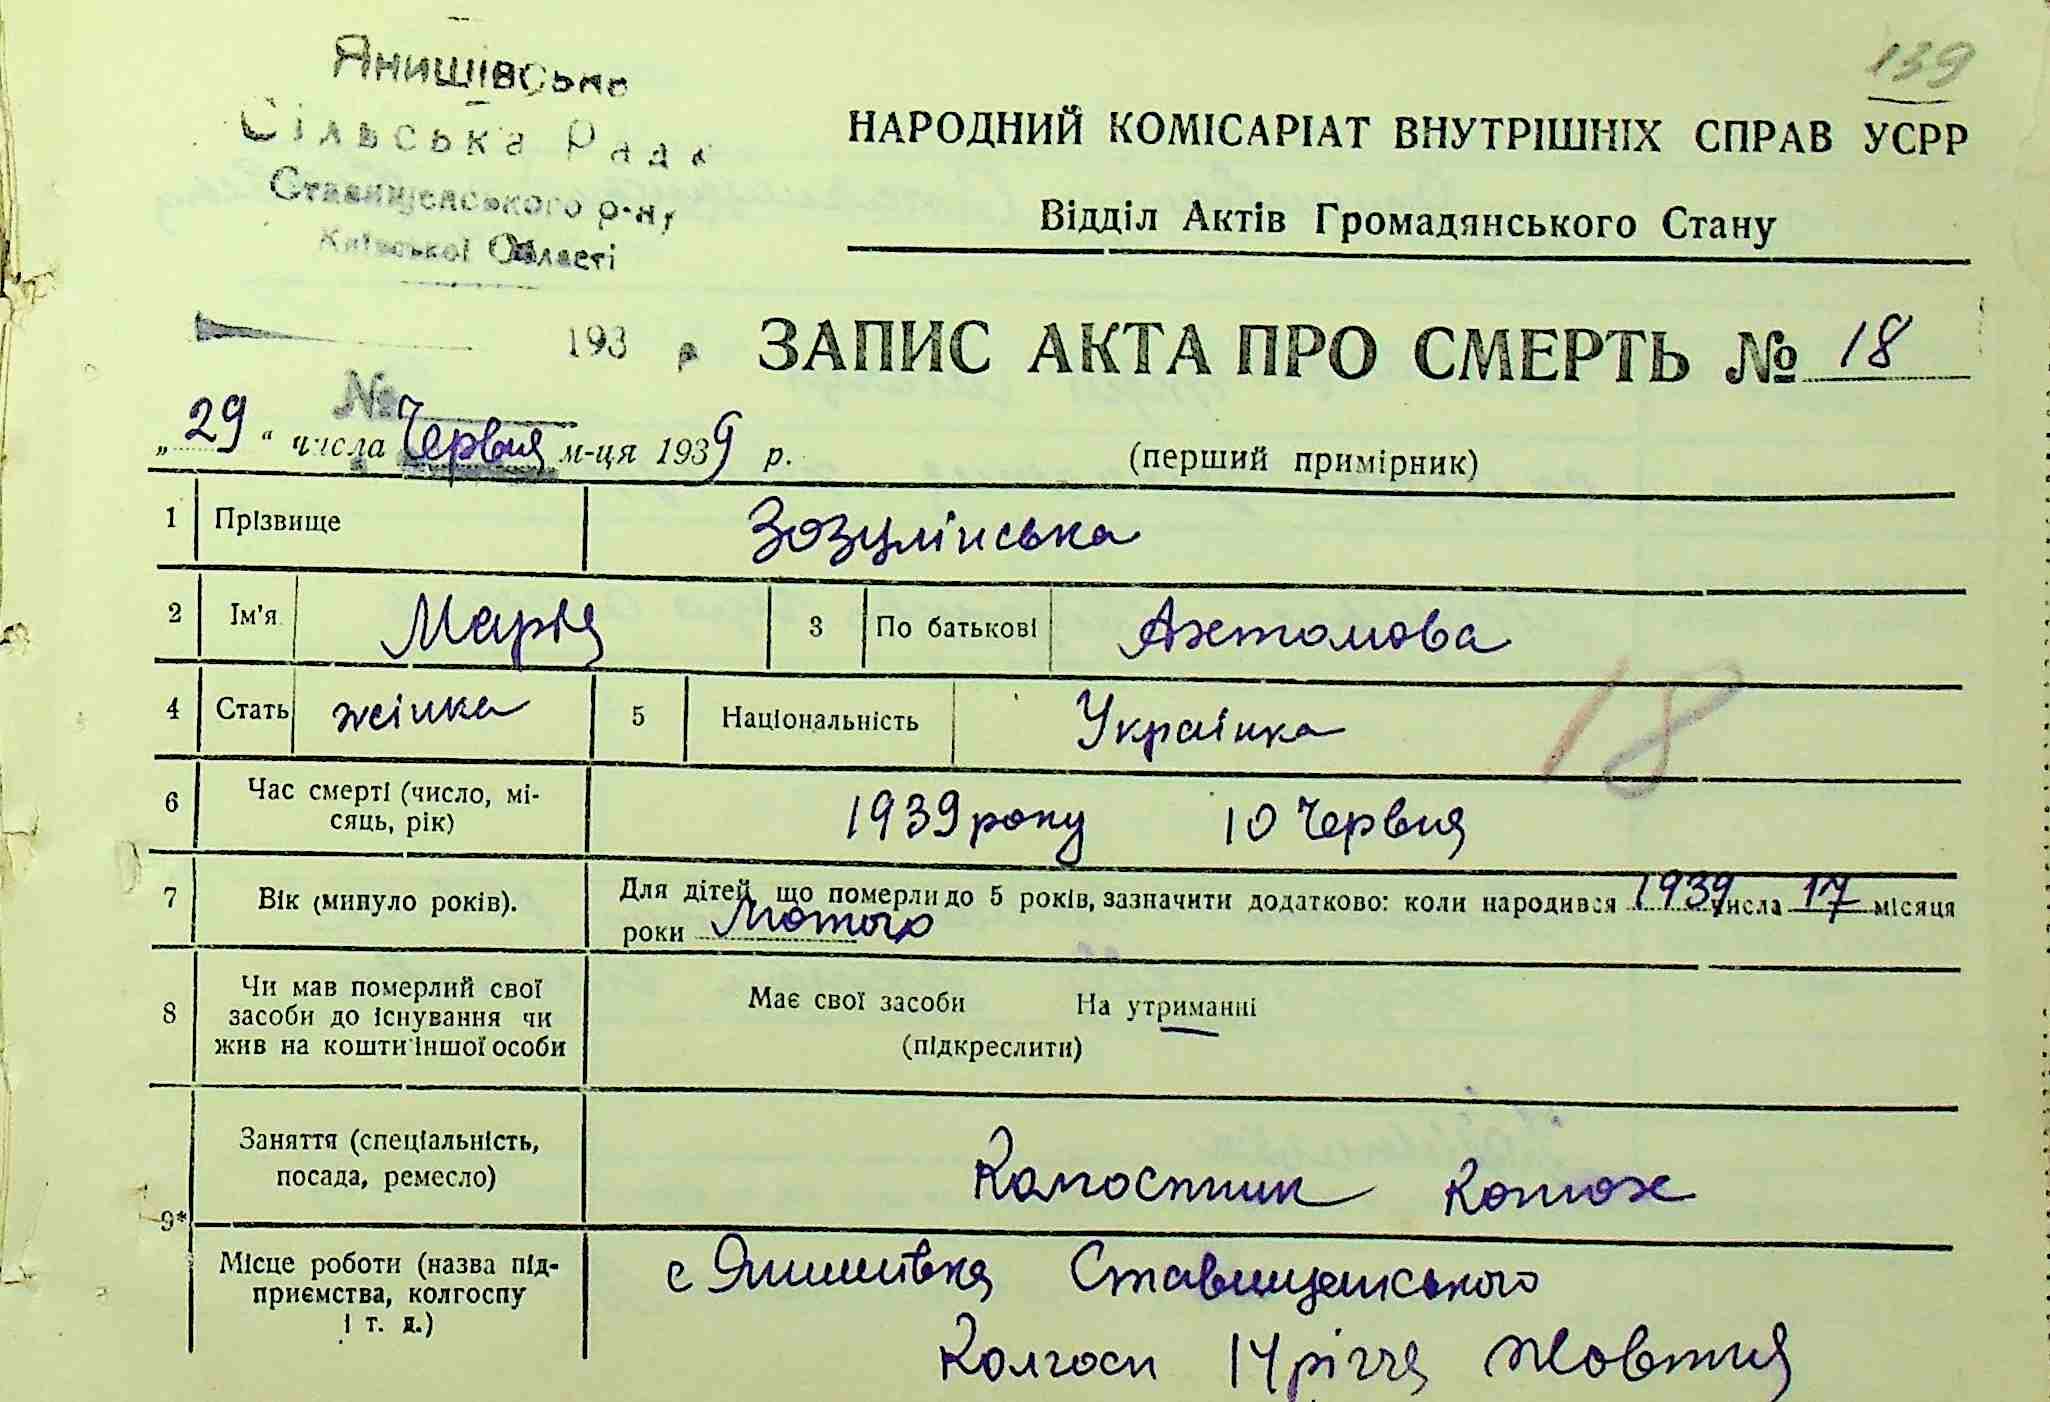 139
Янишівська
Сільська Рада
Ставищенського р-ну
Київської Області
НАРОДНИЙ КОМІСАРІАТ ВНУТРІШНІХ СПРАВ УСРР
Відділ Актів Громадянського Стану
193 р
ЗАПИС АКТА ПРО СМЕРТЬ № 18
№
„29“ числа Червня м-ця 1939 р.
(перший примірник)
1 Прізвище Зозулінська
2 Ім'я Марія 3 По батькові Ахтомова
4 Стать жінка 5 Національність Українка
18
6 Час смерті (число, мі-
сяць, рік)
1939 року 10 Червня
7 Вік (минуло років).
Для дітей, що померли до 5 років, зазначити додатково: коли народився 1939 числа 17 місяця
роки Лютого
8 Чи мав померлий свої
засоби до існування чи
жив на кошти іншої особи
Має свої засоби На утриманні
(підкреслити)
9*
Заняття (спеціальність,
посада, ремесло)
Місце роботи (назва під-
приємства, колгоспу
і т. д.)
с Янишівка Ставищенського
Колгосп 14 річчя Жовтня